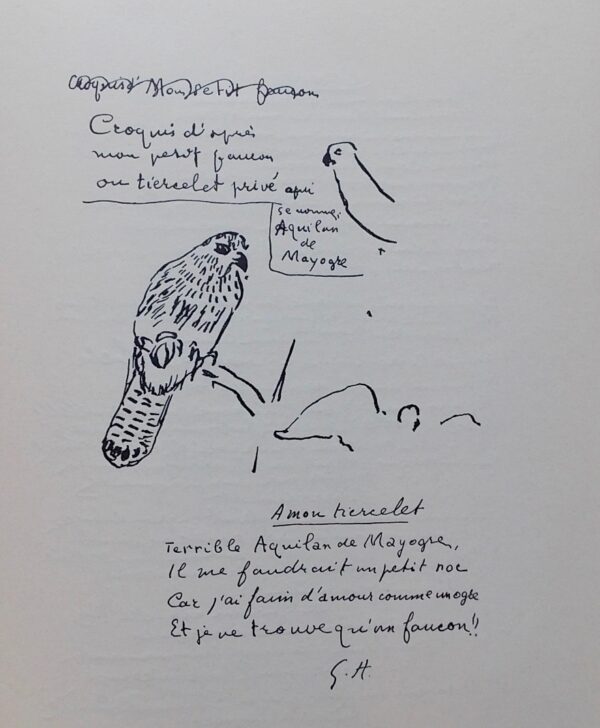 Croquis d' Mon petit faucon
Croquis d'après
mon petit faucon
ou tiercelet privé qui
se nomme
Aquilan
de
Mayogre
A mon tiercelet
Terrible Aquilan de Mayogre,
Il me faudrait un petit noc
Car j'ai faim d'amour comme un ogre
Et je ne trouve qu'un faucon!!
G. H.